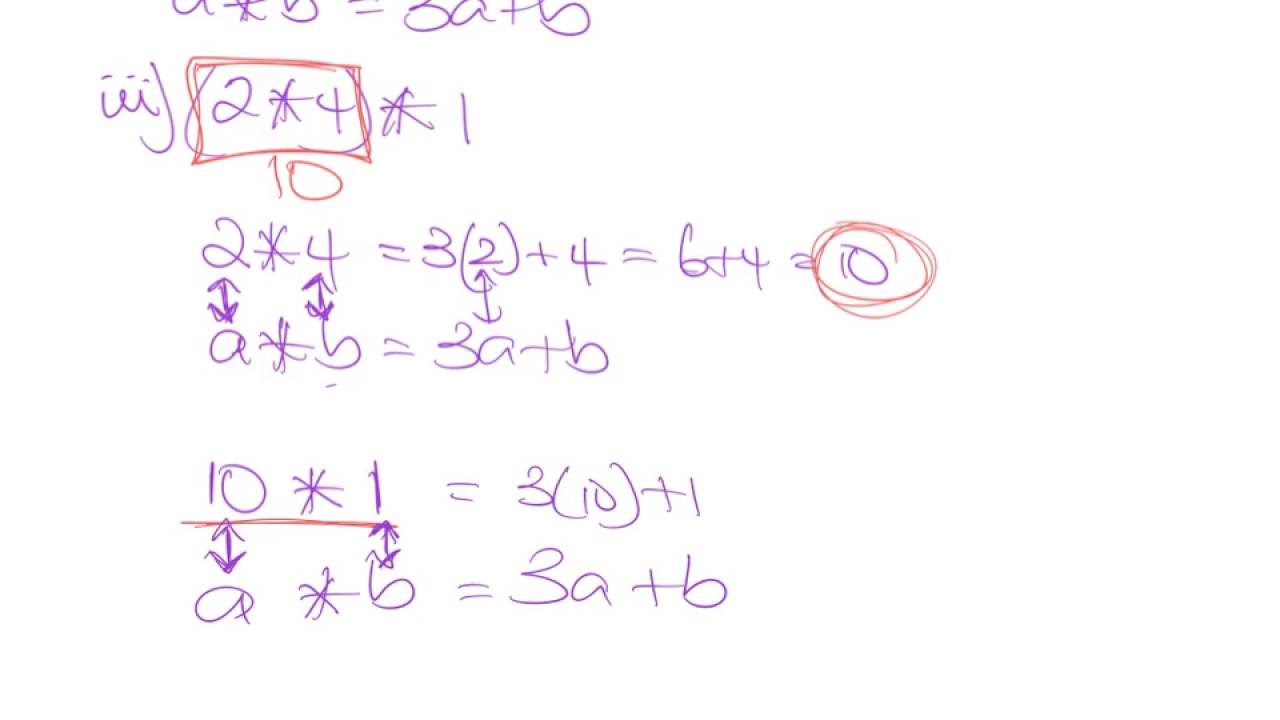 a * b = 3a+b
iii) (2 * 4) * 1
10
2 * 4 = 3(2) + 4 = 6+4 = 10
a * b = 3a+b
10 * 1 = 3(10)+1
a * b = 3a+b